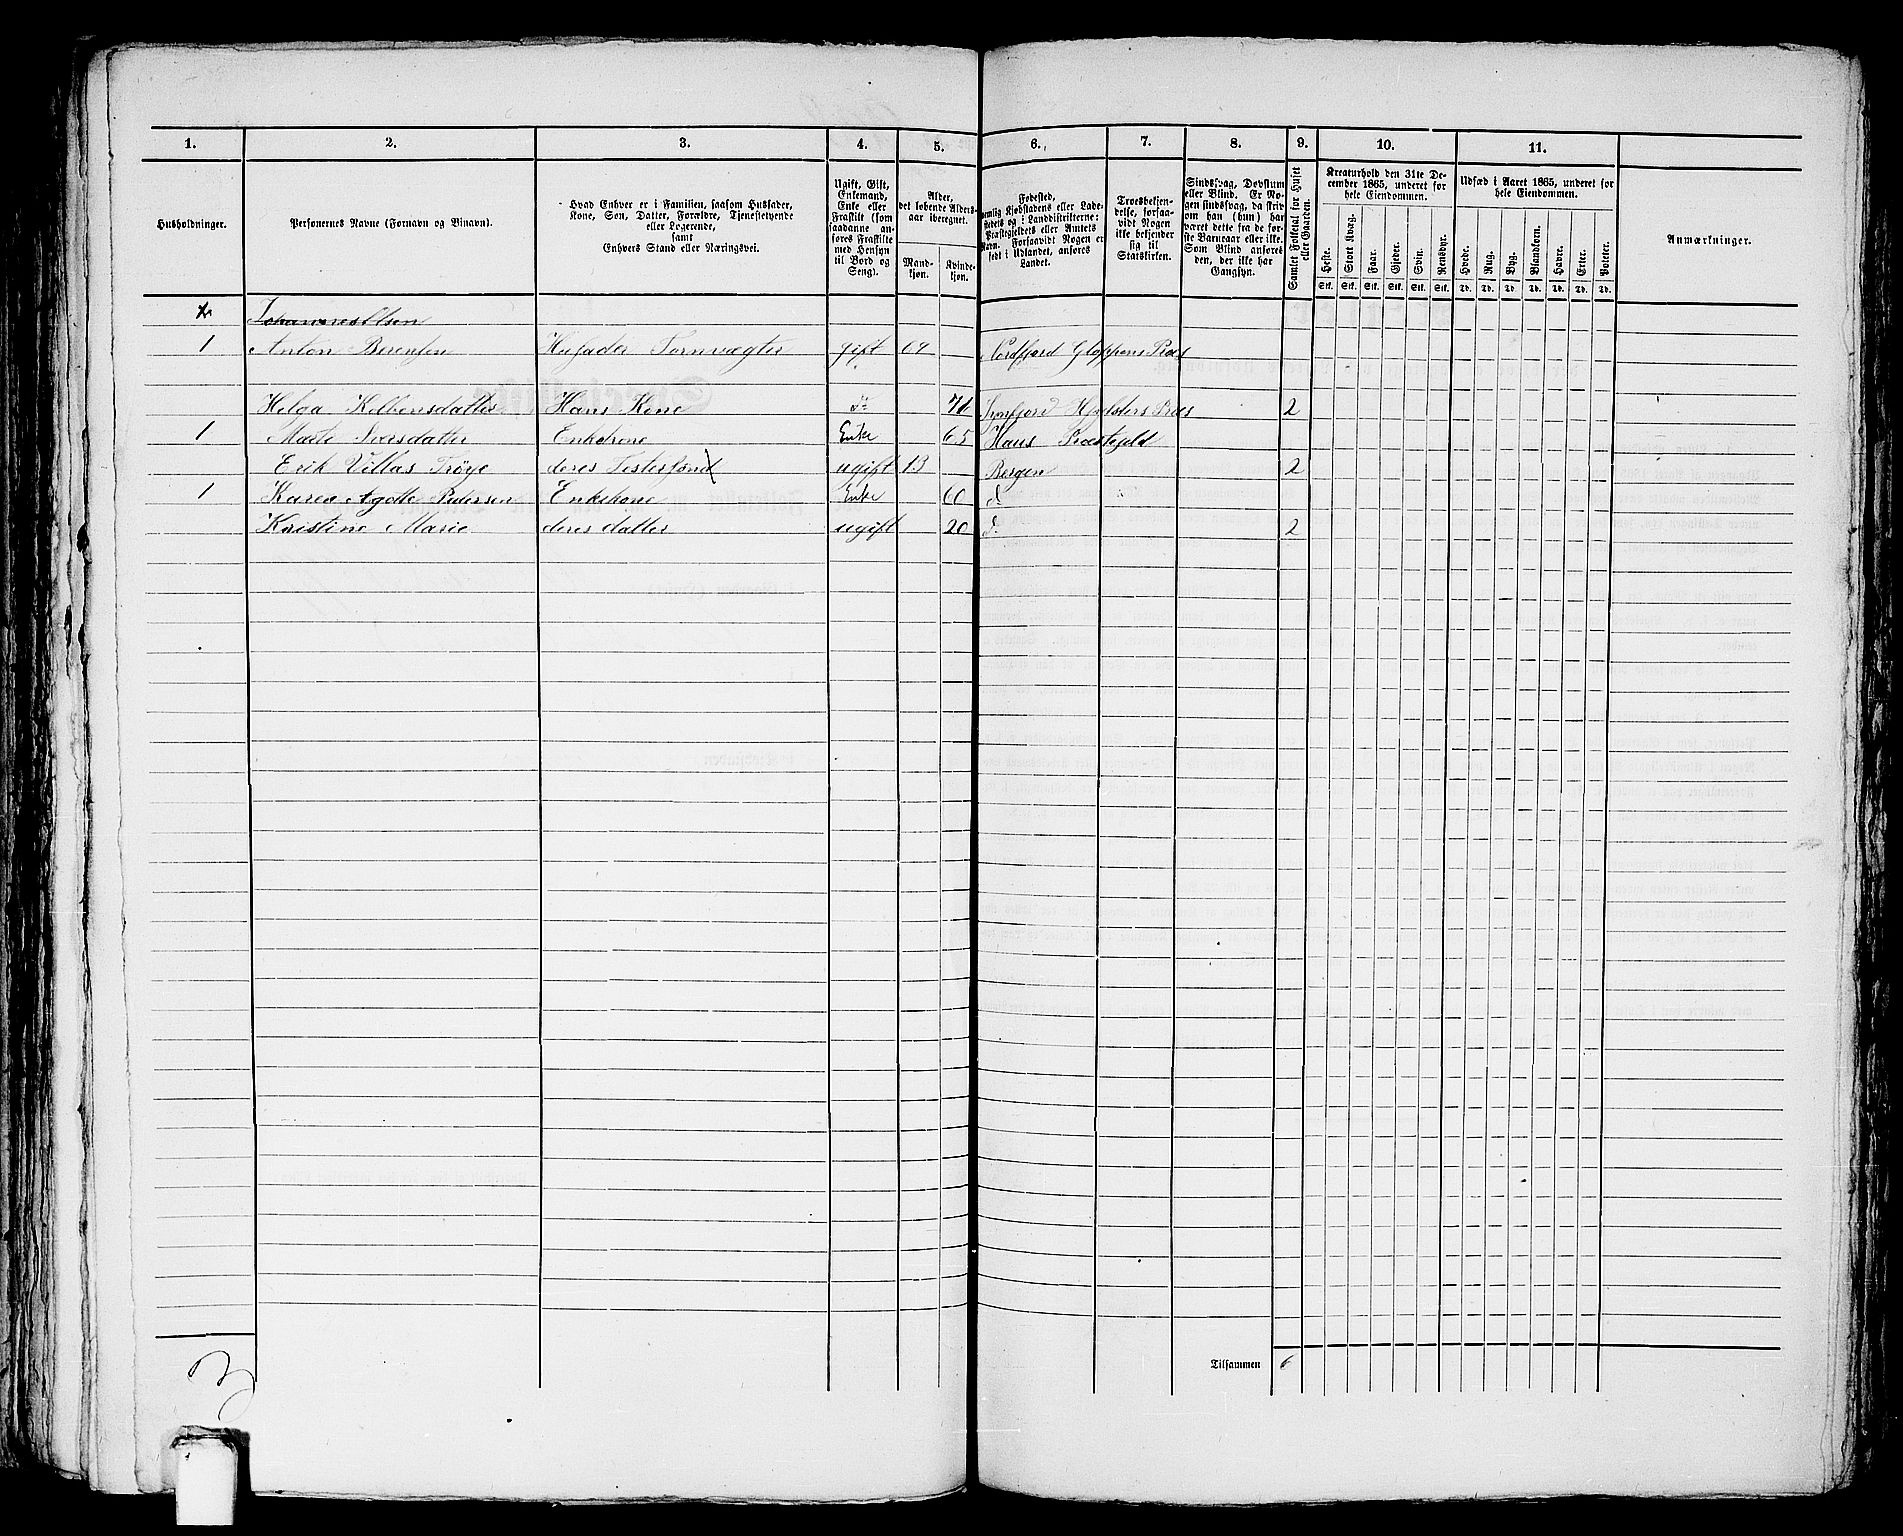 1. 2. 3. 4. 5. 6. 7. 8. 9. 10. 11.
Husholdninger.
Personernes Navne (Fornavn og Binavn).
Hvad Enhver er i Familien, saasom Husfader,
Kone, Søn, Datter, Forældre, Tjenestetyende
eller Logerende,
samt
Enhvers Stand eller Næringsvei.
Ugift, Gift,
Enkemand,
Enke eller
Fraskilt (som
saadanne an-
føres Fraskilte
med Hensyn
til Bord og
Seng).
Alder,
det løbende Alders-
aar iberegnet.
Mand-
kjøn.
Kvinde-
kjøn.
Fødested,
nemlig Kjøbstadens eller Lade-
stedets og i Landdistrikterne:
Præstegjeldets eller Amtets
Navn. Forsaavidt Nogen er
født i Udlandet, anføres
Landet.
Troesbekjen-
delse, forsaa-
vidt Nogen
ikke bekjender
sig til
Statskirken.
Sindssvag, Døvstum
eller Blind. Er No-
gen sindssvag, da skriv
om han (hun) har
været dette fra de før-
ste Barneaar eller ikke.
Som Blind ansøres
den, der ikke har
Gangsyn.
Samlet Folketal for Huset
eller Gaarden.
Kreaturhold den 31te De-
cember 1865, underet for
hele Eiendommen.
Heste. Stort Kvæg. Faar. Gjeder. Svin. Rensdyr.
Stk. Stk. Stk. Stk. Stk. Stk.
Udsæd i Aaret 1865, underet for
hele Eiendommen.
Hvede. Rug. Byg. Blandkorn. Havre. Erter. Poteter.
Td. Td. Td. Td. Td. Td. Td.
Anmærkninger.
Johannes Olsen
1 Anton Berensen Husfader gift Nordfjord Gloppens Præs
Helga Hans Kone do 71 Præs 2
1 Enkekone Enke 65 Haus Præstegjeld
Erik Villas Trøye deres Søstersønd ugift 13 Bergen 2
1 Karen Agotte Pedersen Enkekone Enke 60 d
Kristine Marie deres datter ugift 20 d. 2
Tilsammen 6
3